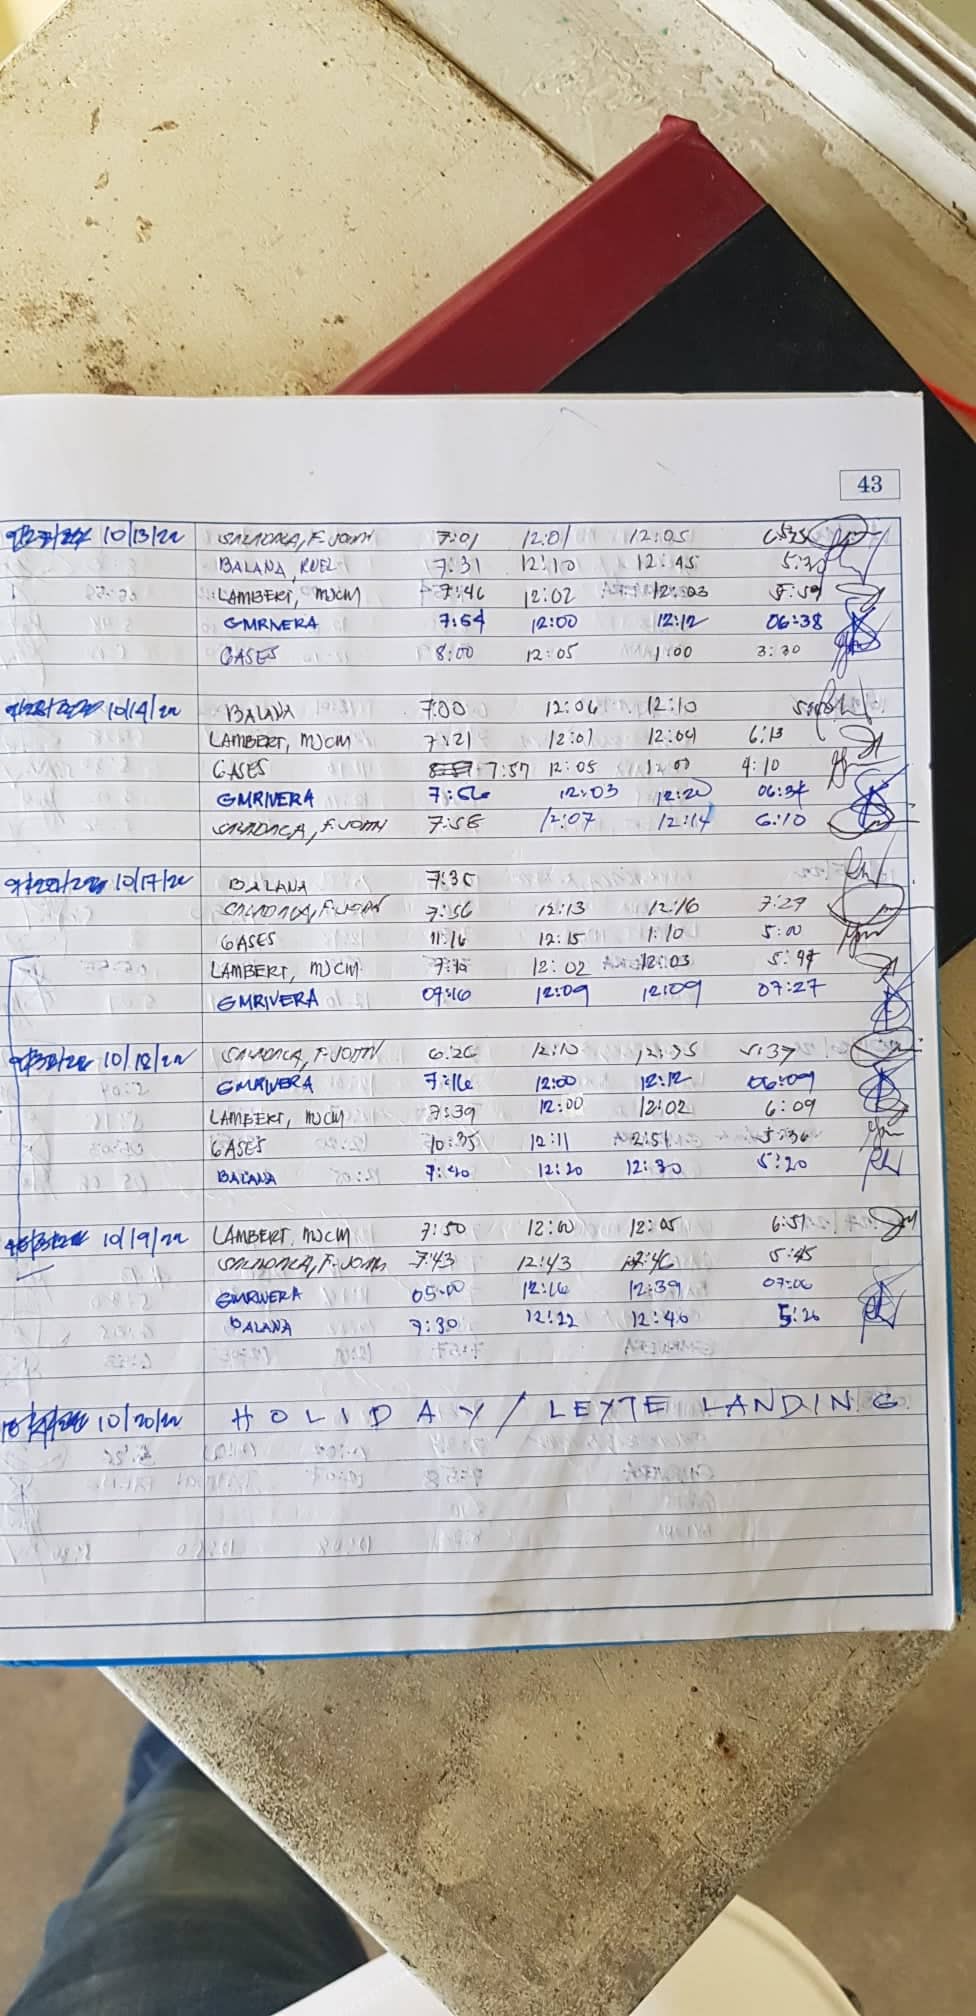 43
10/13/22 F. JOHN 7:01 12:01 12:05
BALANA, RUEL 7:31 12:10 12:45 5:30
LAMBERT, MJCM 7:46 12:02 12:03 5:59
GMRIVERA 7:54 12:00 12:12 06:38
GASES 8:00 12:05 1:00 3:30
10/14/22 BALANA 7:00 12:06 12:10
LAMBERT, MJCM 7:21 12:01 12:04 6:13
GASES 7:57 12:05 1:00 4:10
GMRIVERA 7:56 12:03 12:20 06:34
F. JOHN 7:58 12:07 12:14 6:10
10/17/22 BALANA 7:35
F. JOHN 7:56 12:13 12:16 7:29
GASES 11:16 12:15 1:10 5:00
LAMBERT, MJCM 12:02 12:03
GMRIVERA 07:16 12:09 12:09 07:27
10/18/22 F. JOHN 6:26 12:10 12:35 5:37
GMRIVERA 7:16 12:00 12:12 06:09
LAMBERT, MJCM 7:39 12:00 12:02 6:09
GASES 10:35 12:11 5:36
BALANA 7:40 12:20 12:30 5:20
10/19/22 LAMBERT, MJCM 7:50 12:00 12:05 6:51
F. JOHN 7:43 12:43 12:46 5:45
GMRIVERA 05:00 12:16 12:39 07:06
BALANA 7:30 12:22 12:40 5:20
10/20/22 HOLIDAY / LEYTE LANDING